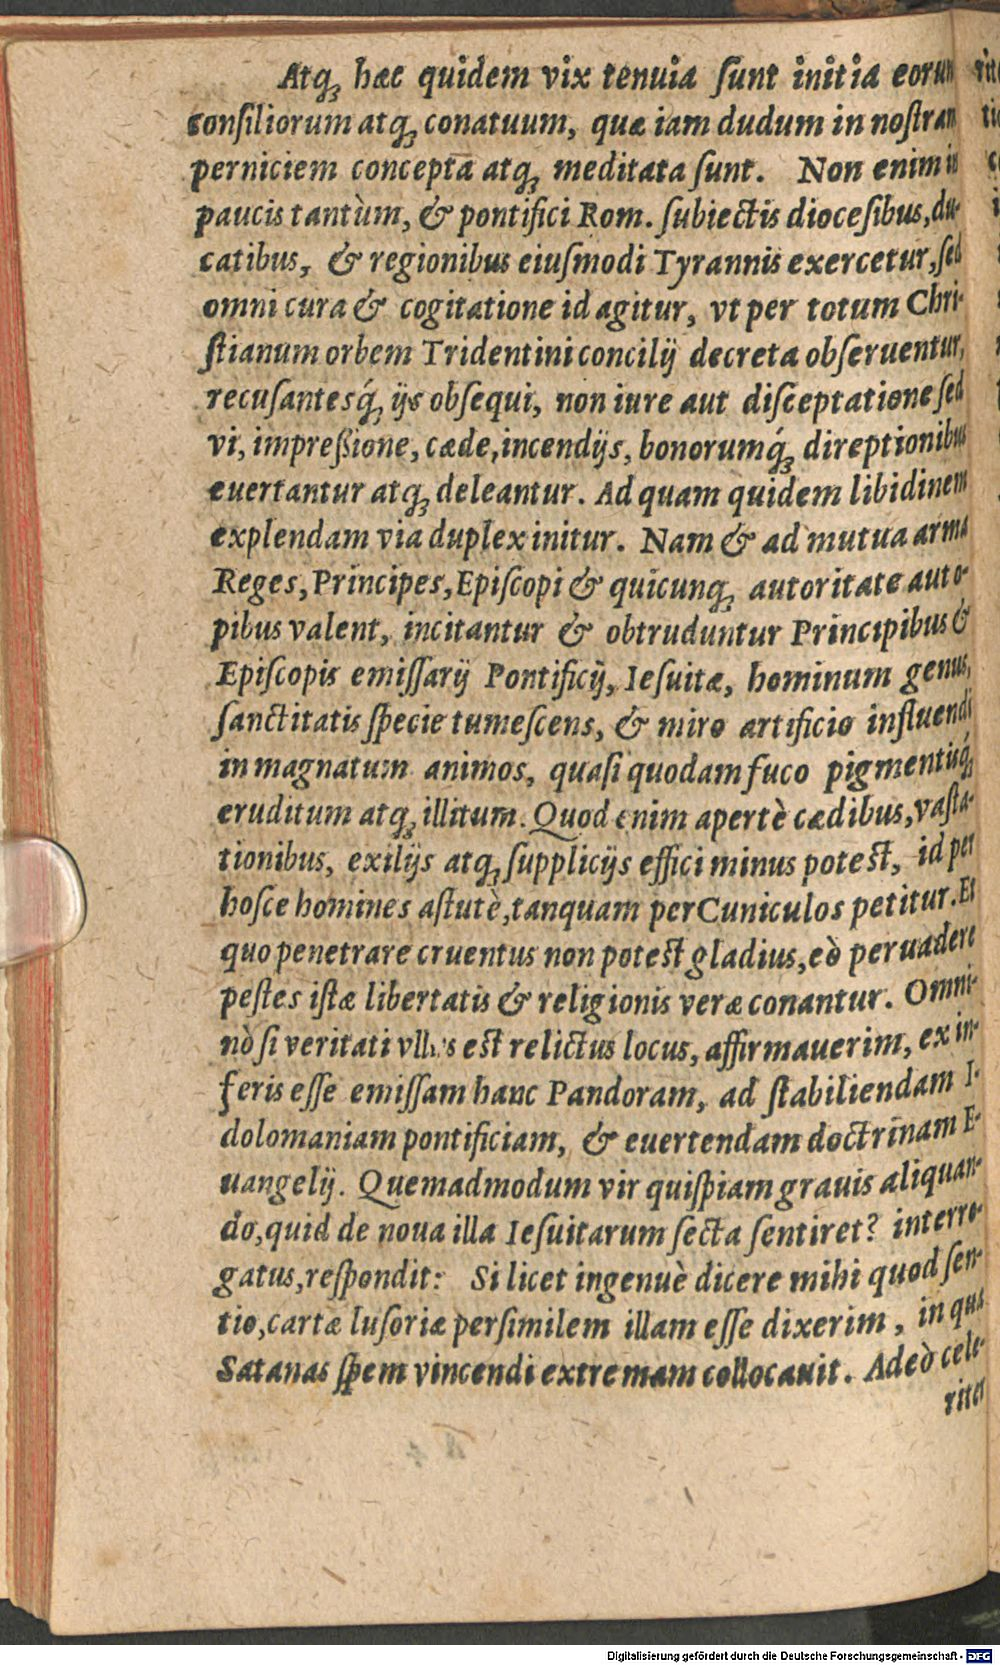 Atq; hæc quidem vix tenuia ſunt initia eorum
conſiliorum atq; conatuum, quæ iam dudum in noſtram
perniciem concepta atq; meditata ſunt. Non enim in
paucis tantùm, & pontifici Rom. ſubiectis diœceſibus, du-
catibus, & regionibus eiuſmodi Tyrannis exercetur, ſed
omni cura & cogitatione id agitur, vt per totum Chri-
ſtianum orbem Tridentini concilij decreta obſeruentur,
recuſantesq́; ijs obſequi, non iure aut diſceptatione ſed
vi, impreßione, cæde, incendijs, bonorumq́; direptionibus
euertantur atq; deleantur. Ad quam quidem libidinem
explendam via duplex initur. Nam & ad mutua arma
Reges, Principes, Epiſcopi & quicunq; autoritate aut o-
pibus valent, incitantur & obtruduntur Principibus &
Epiſcopis emiſſarij Pontificij, Ieſuitæ, hominum genus,
ſanctitatis ſpecie tumeſcens, & miro artificio influendi
in magnatum animos, quaſi quodam fuco pigmentiıſq́;
eruditum atq; illitum. Quod enim apertè cædibus, vaſta-
tionibus, exilijs atq; ſupplicijs effici minus poteſt, id per
hoſce homines aſtutè, tanquam per Cuniculos petitur. Et
quo penetrare cruentus non poteſt gladius, eò peruadere
peſtes iſtæ libertatis & religionis veræ conantur. Omni-
nò ſi veritati vllus eſt relictus locus, affirmauerim, ex in-
feris eſſe emiſſam hanc Pandoram, ad ſtabiliendam I-
dolomaniam pontificiam, & euertendam doctrinam E-
uangelij. Quemadmodum vir quiſpiam grauis aliquan-
do, quid de noua illa Ieſuitarum ſecta ſentiret? interro-
gatus, reſpondit: Si licet ingenuè dicere mihi quod ſen-
tio, cartæ luſoriæ perſimilem illam eſſe dixerim, in qua
Satanas ſpem vincendi extremam collocauit. Adeò cele-
riter
Digitalisierung gefördert durch die Deutsche Forschungsgemeinschaft - DFG